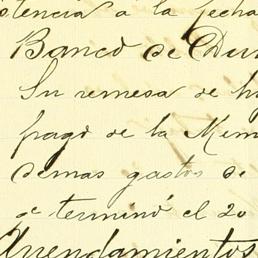 stencia a la fecha
Banco de Dur
Su remesa de h
pago de la Mem
demas gastos de
qe terminó el 20
Arrendamientos